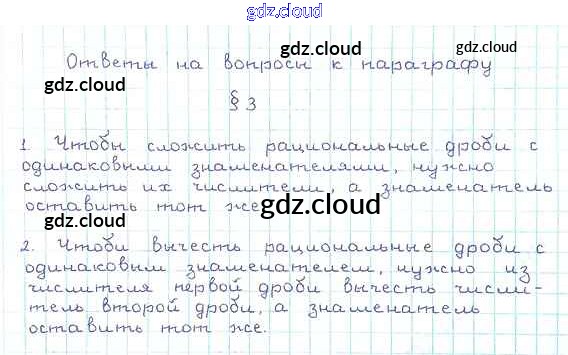 gdz.cloud
Ответы на вопросы к параграфу
gdz.cloud
gdz.cloud
gdz.cloud
§ 3
1. Чтобы сложить рациональные дроби с
gdz.cloud
gdz.cloud
одинаковыми знаменателями, нужно
сложить их числители, а знаменатель
оставить тот же.
gdz.cloud
gdz.cloud
2. Чтоби вычесть рациональные дроби с
одинаковым знаменателем, нужно из
числителя первой дроби вычесть числи-
тель второй дроби, а знаменатель
оставить тот же.